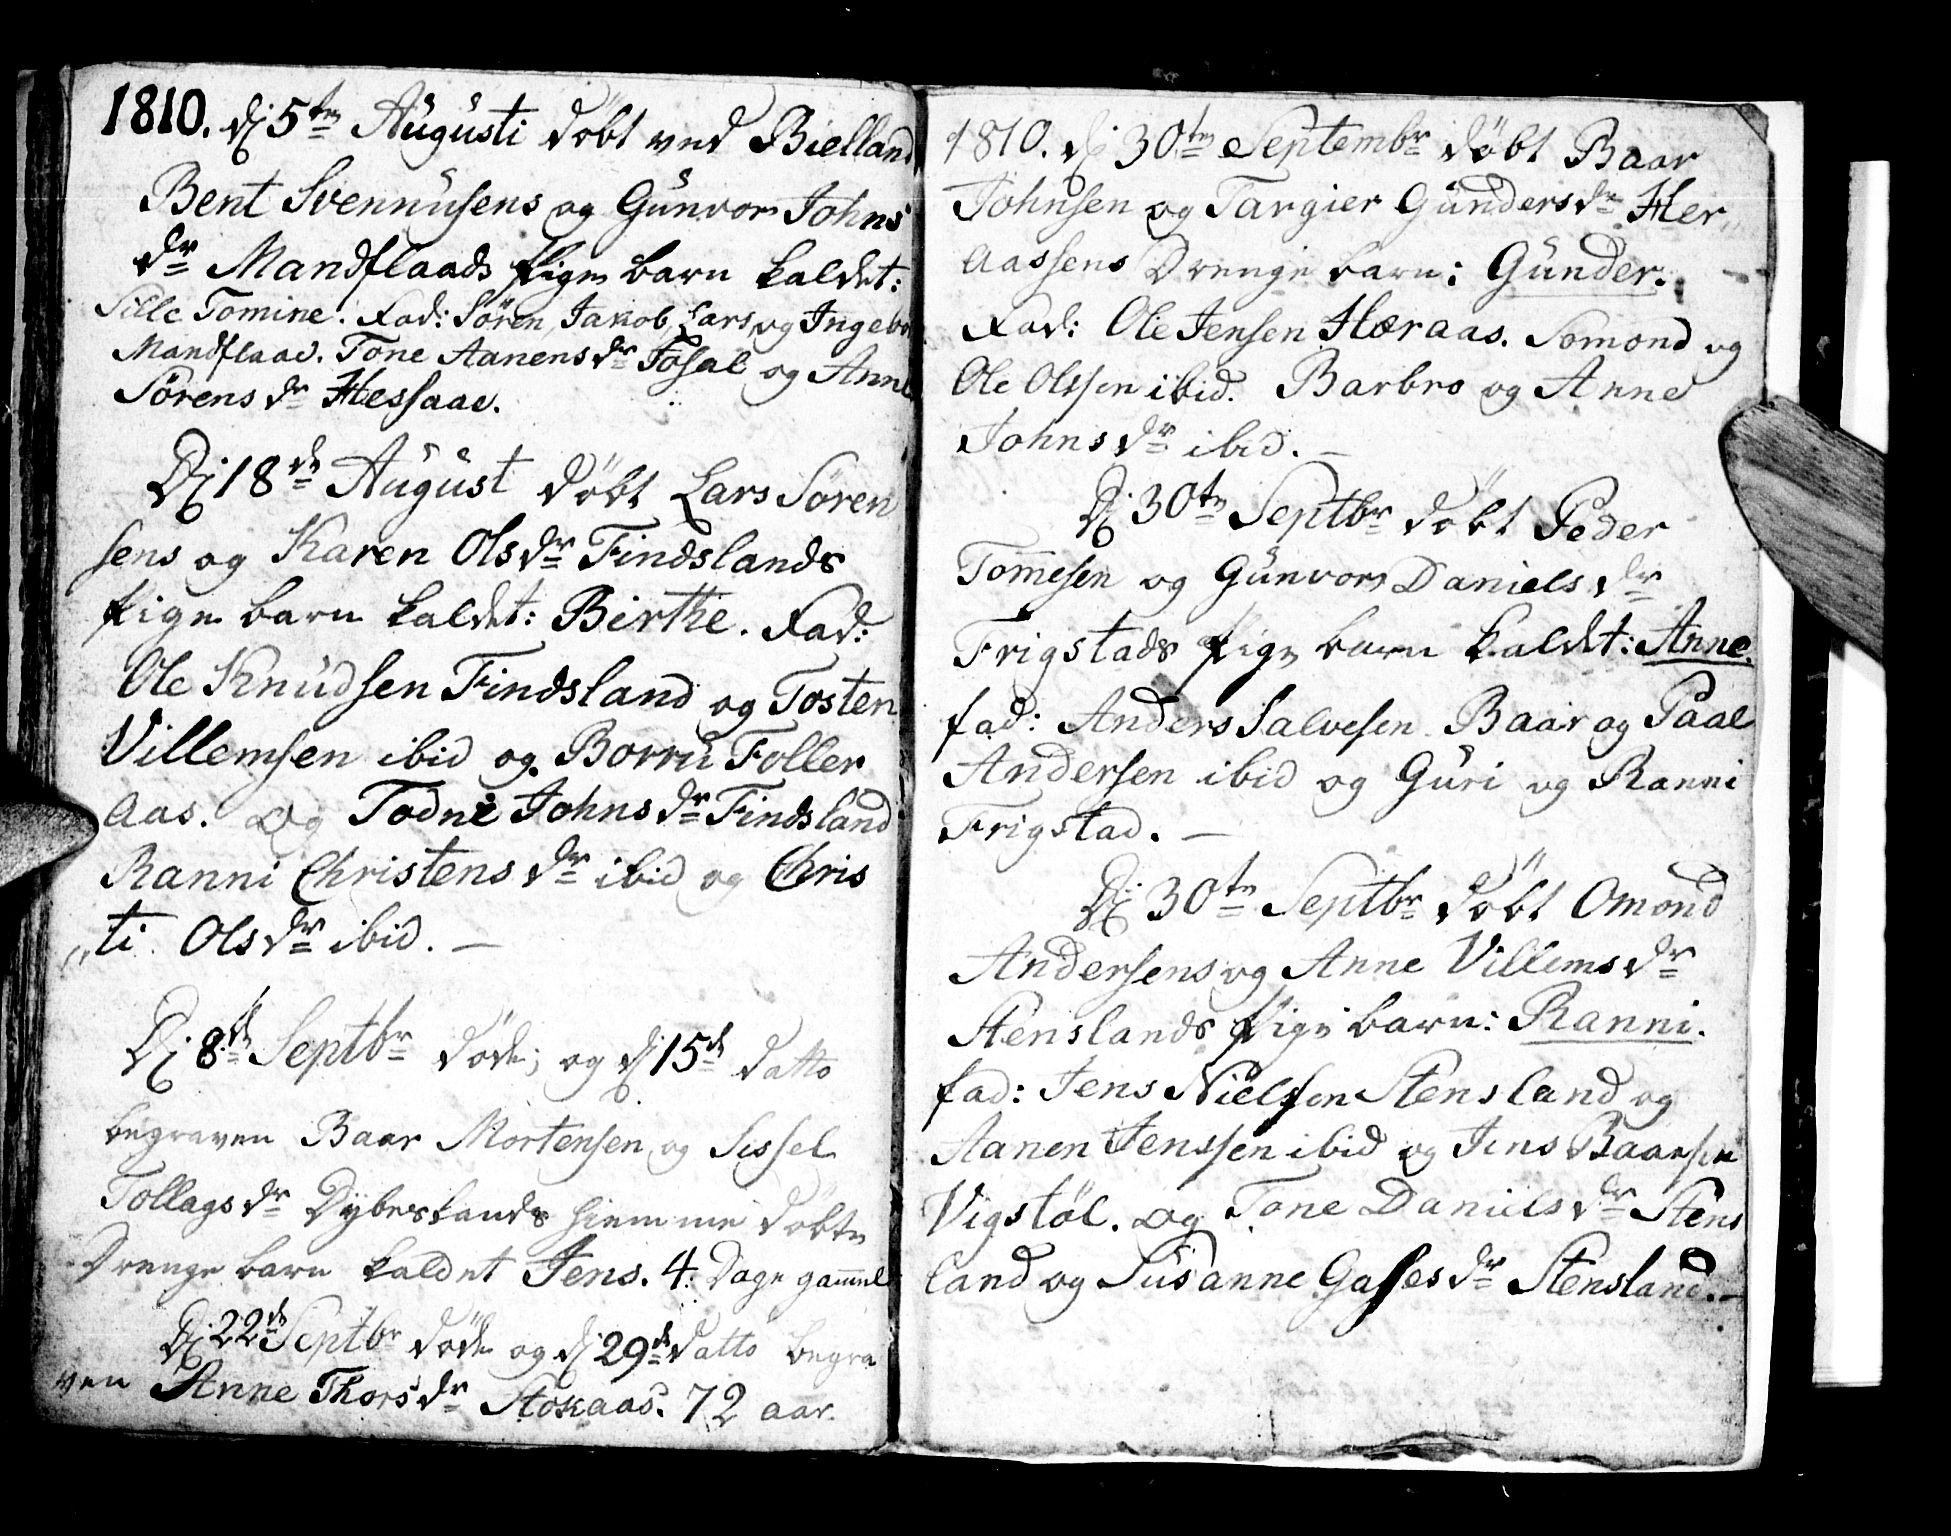 1810. dj 5te Augusti döbt ved Bielland
Bent Svennusens og Gunvor Johns
dr Mandflaads Pige barn kaldet:
Sille Tomine. Fad: Sören, Jakob, Lars og Ingebo
Mandflaad. Tone Aanensdr Josal og Anne
Sörensdr Hessaae.
Dj 18de August döbt Lars Sören
sens og Karen Olsdr Findslands
Pige barn kaldet: Birthe. Fad:
Ole Knudsen Findsland og Tosten
Villemsen ibid og Borru Foller
aas. Og Todne Johnsdr Findsland
Ranni Christensdr ibid og Chris
„ti Olsdr ibid. —
Dj 8de Septbr döde; og dj 15de datto
begraven Baar Mortensen og Sissel
Tollagsdr Dybeslands hiemme döbte
Drenge barn kaldet Jens. 4: Dage gam̅el
Dj 22de Septbr döde og dj 29de datto begra
ven Anne Thorsdr Stokaas. 72 aar.
1810. dj 30te Septembr döbt Baar
Johnsen og Targier Gundersdr Her„
aassens Drenge barn: Gunder.
Fad: Ole Jensen Hæraas. Somond og
Ole Olssen ibid. Barbro og Anne
Johnsdr ibid. —
Dj 30te Septbr döbt Peder
Tom̅esen og Gunvor Danielsdr
Frigstads Pige barn kaldet: Anne.
fad: Anders Salvesen. Baar og Paal
Andersen ibid og Guri og Ranni
Frigstad. —
Dj 30te Septbr döbt Omond
Andersens og Anne Villemsdr
Stenslands Pige barn: Ranni.
fad: Jens Nielssen Stensland og
Aanen Jenssen ibid og Jens Baarsen
Vigstöl. Og Tone Danielsdr Stens
land og Susanne Gassesdr Stensland. —